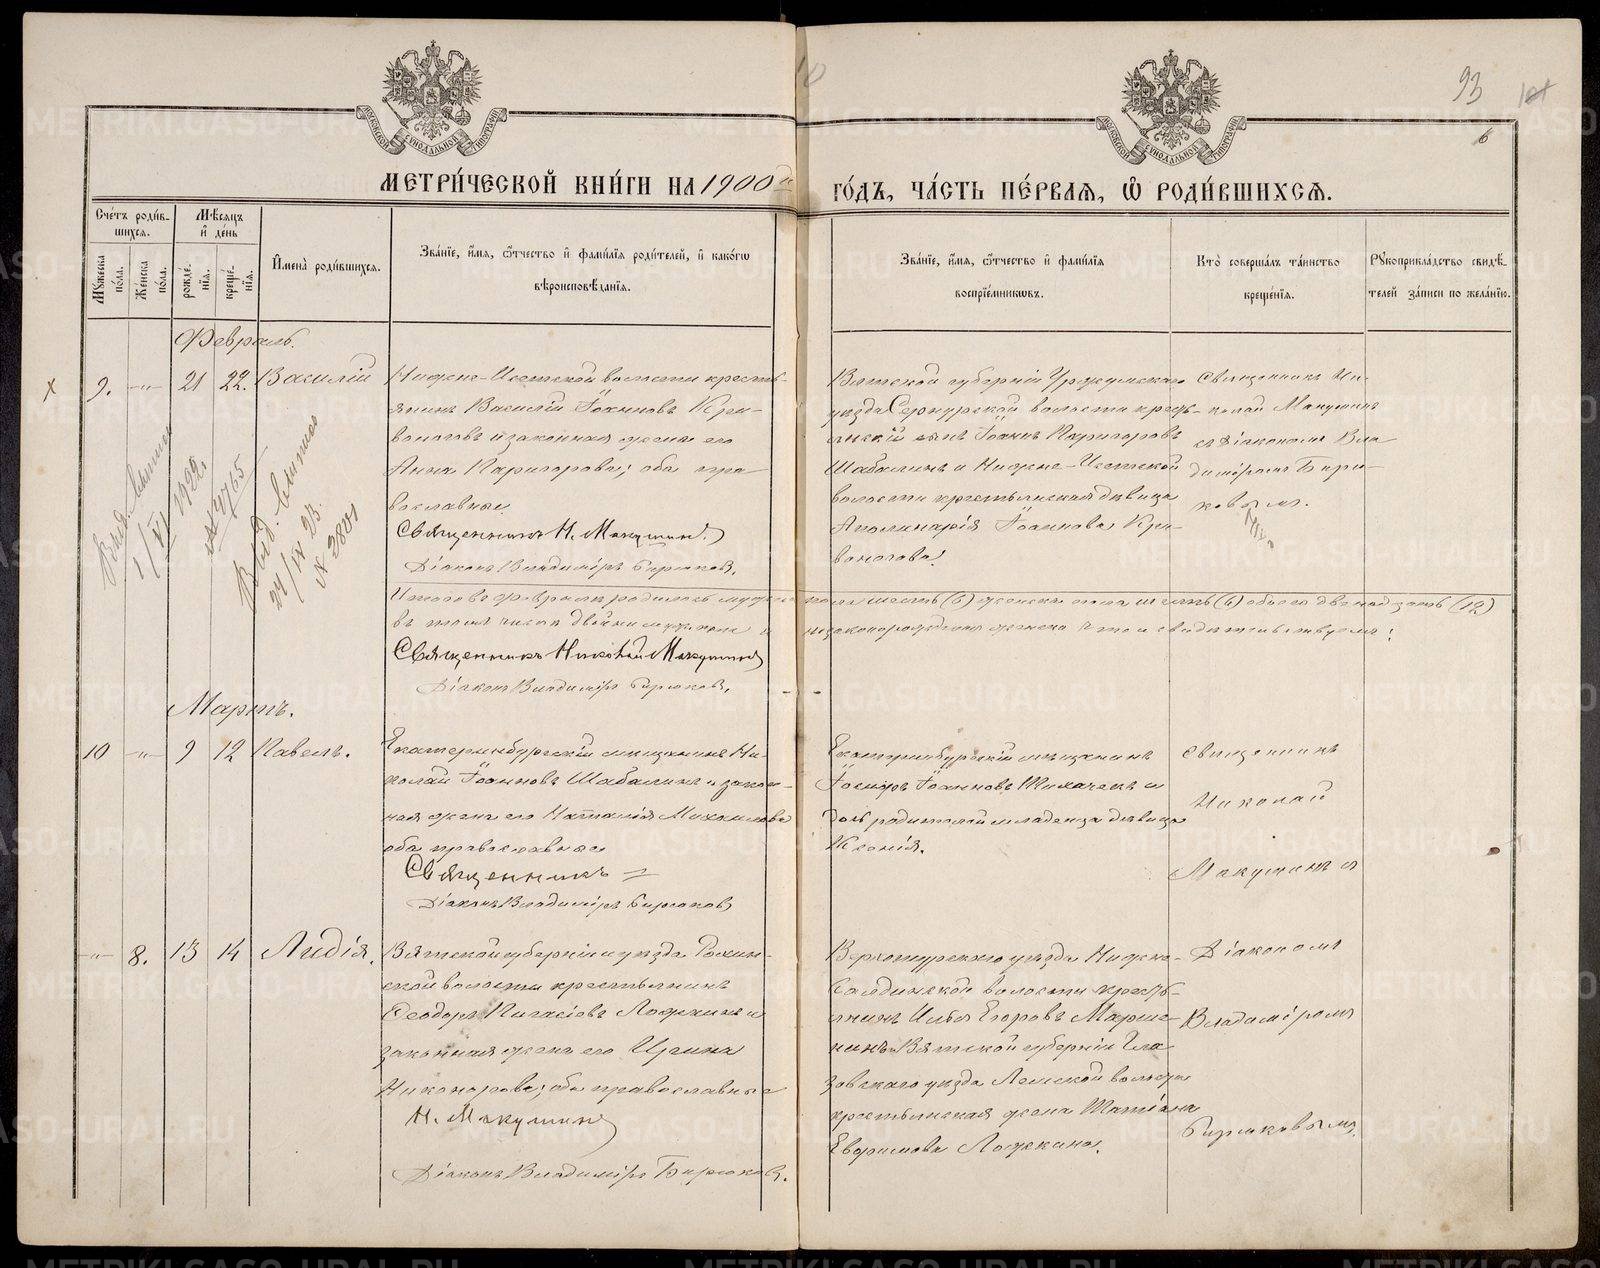 93
6
МЕТРИ́ЧЕСКОЙ КНИ́ГИ НА 1900й
ГО́ДЪ, ЧА́СТЬ ПЕ́РВАѦ, Ѽ РОДИ́ВШИХСѦ.
МОСКОВСКОЙ СѴНОДАЛЬНОЙ ТИПОГРАФІИ
МОСКОВСКОЙ СѴНОДАЛЬНОЙ ТИПОГРАФІИ
Счётъ роди́вшихся.
Му́жеска по́ла.
Же́нска по́ла.
Мѣ́сяцъ и҆ де́нь
рожде́нїя.
креще́нїя.
И҆мена̀ роди́вшихся.
Зва́нїе, и҆́мя, ѻ҆́тчество и҆ фами́лїя роди́телей, и҆ како́гѡ
вѣроисповѣ́данїя.
Зва́нїе, и҆́мя, ѻ҆́тчество и҆ фами́лїя
воспрїе́мникѡвъ.
Кто̀ соверша́лъ та́инство
креще́нїя.
Рꙋкоприкла́дство свидѣ́-
телей за́писи по жела́нїю.
Февраль.
9. -"- 21 22. Василій
Нижне-Исетской волости кресть-
янинъ Василій Іоанновъ Кри-
воноговъ и законная жена его
Анна Григорова; оба пра-
вославные.
Священникъ Н. Макушин.
Діаконъ Владиміръ Бирюковъ.
Вятской губерніи Уржумскаго
уѣзда Сернурской волости кресть-
янскій сынъ Іоаннъ Григоровъ
Шабалинъ и Нижне-Исетской
волости крестьянская дѣвица
Аполинарія Іоаннова Кри-
воногова.
Священникъ Ни-
колай Макушинъ
съ Діакономъ Вла-
диміромъ Бирю-
ковымъ.
1/VI 1922
№ 4765
Выд. выпись
24/IV 23.
N 2801
Итого въ Февралѣ родилось мужска пола шесть (6) женска пола шесть (6) обоего двенадцать (12)
въ томъ числѣ двойни мужскія и незаконорожденная женска 1 въ чемъ и свидѣтельствуемъ:
Священникъ Николай Макушинъ
Діаконъ Владиміръ Бирюковъ.
Мартъ.
10 -"- 9 12 Павелъ.
Екатеринбургскій мѣщанинъ Ни-
колай Іоанновъ Шабалинъ и закон-
ная жена его Наталія Михаилова
оба православные
Священникъ =
Діаконъ Владиміръ Бирюковъ
Екатеринбургскій мѣщанинъ
Іосифъ Іоанновъ и
дочь родителей младенца дѣвица
Ксенія.
Священникъ
Николай
Макушинъ и
-"- 8. 13 14 Лидія.
Вятской губерніи и уѣзда
ской волости крестьянинъ
Феодоръ Ложкинъ и
законная жена его Ирина
Никонорова; оба православные
Н. Макушинъ
Діаконъ Владиміръ Бирюковъ.
Верхотурскаго уѣзда Нижне-
Салдинской волости кресть-
янинъ Илья Егоровъ
Вятской губерніи Гла-
зовскаго уѣзда Лемской волости
крестьянская жена Татіана
Ефимова Ложкина.
Діакономъ
Владиміромъ
Бирюковымъ.
METRIKI.GASO-URAL.RU